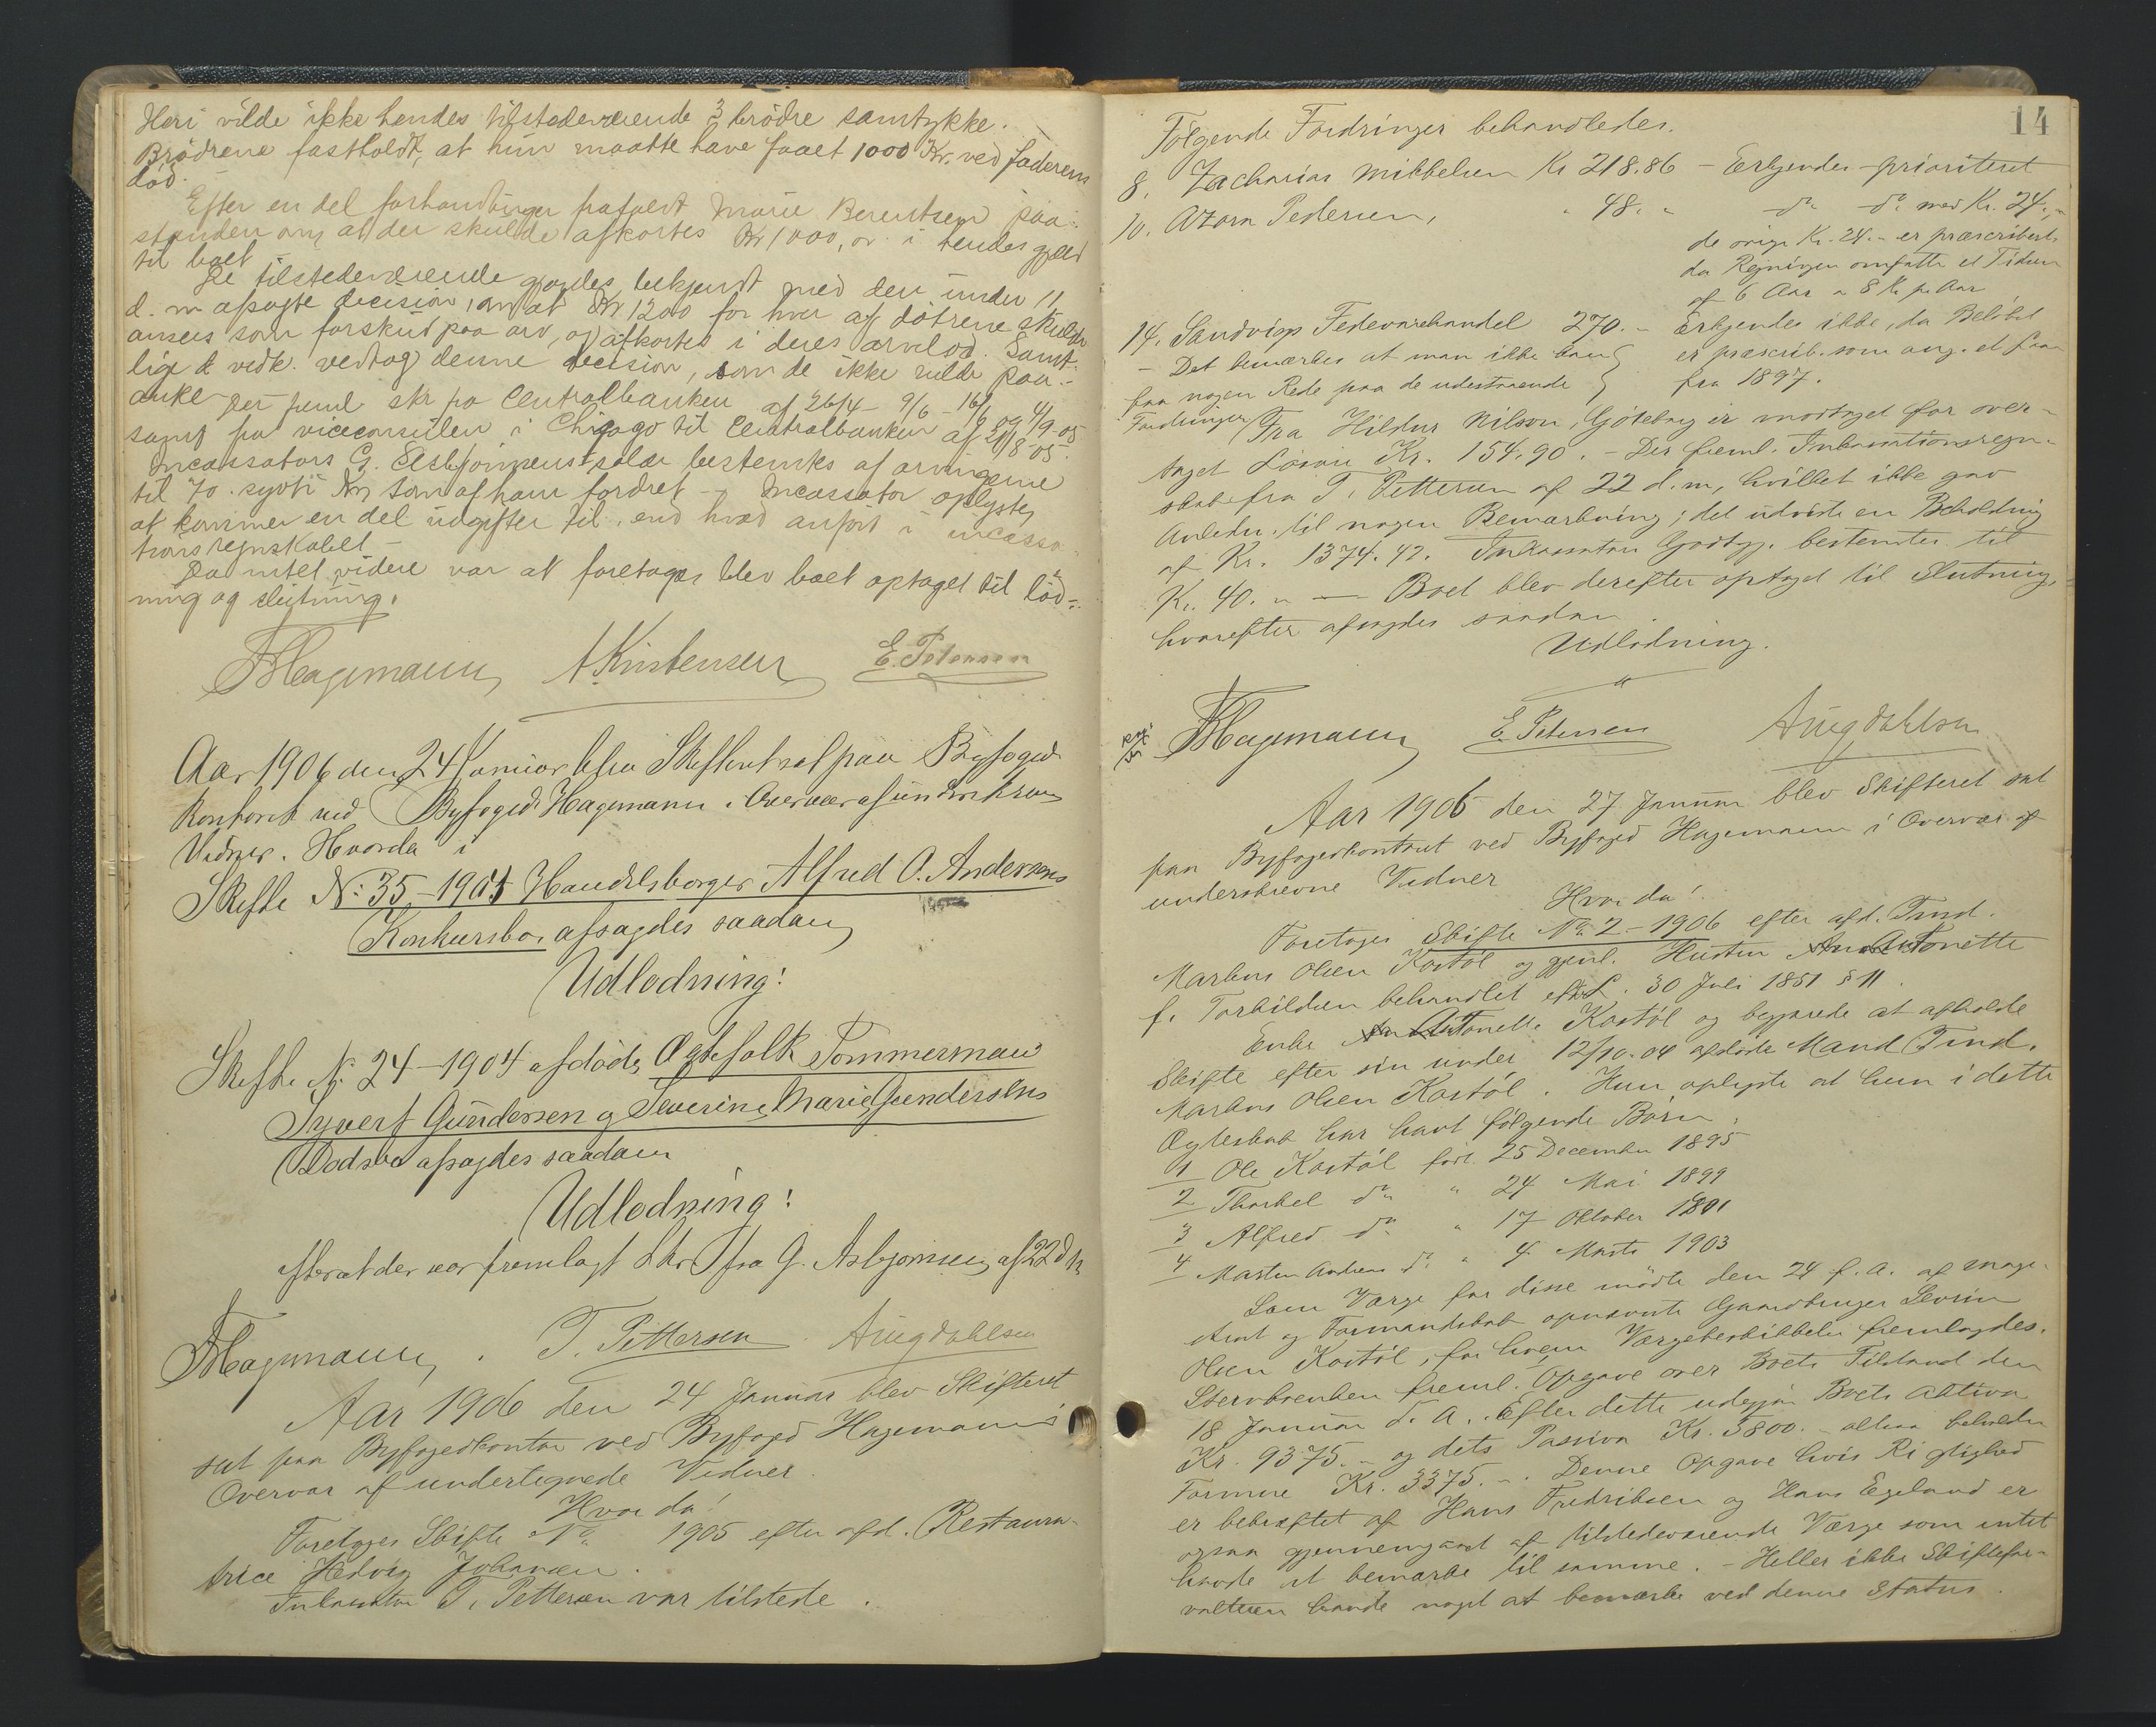 Heri vilde ikke hendes tilstedeværende 3 brødre samtykke.
Brødrene fastholdt, at hun maatte have faaet 1000 Kr. ved faderens
død.
Efter en del forhandlinger frafaldt Marie Berentsen paa-
standen om at der skulde afkortes Kr 1000, or i hendes gjæld
til boet
De tilstedeværende gjordes bekjendt med den under 11
d. m afsagte decision, om at Kr 1200 for hver af døtrene skulde
ansees som forskud paa arv, og afkortes i deres arvelod. Samt-
lige vedk. vedtog denne decision, som de ikke vilde paa-
anke
Der freml skr fra Centralbanken af 26/4 - 9/6 - 16/6 og 4/9-05
samt fra viceconsulen i Chigago til Centralbanken af 21/8 05.
Incassators G. Asbjørnsens salær bestemtes af arvingerne
til 70. sytti Kr, som af ham fordret - Incassator oplyste,
at kommer en del udgifter til, end hvad anført i incassa-
tionsregnskabet -
Da intet videre var at foretages blev boet optaget til lød-
ning og slutning.
Hagemann A. Kristensen E. Petersen
Aar 1906 den 24 Januar blev Skifteret sat paa Byfoged
kontoret ved Byfoged Hagemann i Overvær af underskrevne
Vidner. Hvorda i
Skifte No 35-1905 Handelsborger Alfred O. Andersens
Konkursbo, afsagdes saadan
Udlodning:
Skifte No 24-1904 afdøde Ægtefolk Tømmermand
Syvert Gundersen og Severine Marie Gundersens
Dødsbo afsagdes saadan
Udlodning:
efterat der var fremlagt Skr fra G. Asbjørnsen af 22 d. m
Hagemann. T. Pettersen Aug Dahlsen
Aar 1906 den 24 Januar blev Skifteret
sat paa Byfogedkontor ved Byfoged Hagemann i
Overvær af undertegnede Vidner.
Hvor da!
Foretoges Skifte No 1905 efter afd. Restaura-
trice Hedvig Johansen.
Inkassator T. Pettersen var tilstede.
14
Følgende Fordringer behandledes.
8. Zacharias Mikkelsen Kr 218.86 - Erkjendes prioriteret
10. Azora Pedersen, " 48. " do do med Kr. 24.-
de øvrige Kr. 24.- er præscriberte
da Regningen omfatter et Tidsrum
af 6 Aar a 8 Kr pr Aar
14. Sandvigs Fedevarehandel 270.- Erkjendes ikke, da Beløbet
- Det bemærkes at man ikke kan er præscrib. som ang. et Laan
faa nogen Rede paa de udestaaende fra 1897.
Fordringer
Fra Hildur Nilson, Gøteborg er modtaget for over-
taget Løsøre Kr. 154.90. - Der freml. Inkassationsregn-
skab fra T. Pettersen af 22 d. m, hvilket ikke gav
Anledn. til nogen Bemærkning; det udviste en Beholdning
af Kr. 1374.42. Inkassators Godtgj. bestemtes til
Kr. 40. " - Boet blev derefter optaget til Slutning,
hvorefter afsagdes saadan
Udlodning.
Hagemann E. Petersen Aug Dahlsen
Aar 1906 den 27 Januar blev Skifteret sat
paa Byfogedkontoret ved Byfoged Hagemann i Overvær af
underskrevne Vidner
Hvor da!
Foretoges Skifte No 2 - 1906 efter afd. Tmd.
Markus Olsen Kostøl og gjenl. Hustru Antonette
f. Torkildsen behandlet efter L. 30 Juli 1851 § 11.
Enke Antonette Kostøl og begjærede at afholde
Skifte efter sin under 12/10-04 afdøde Mand Tmd.
Markus Olsen Kostøl. Hun oplyste at hun i dette
Ægteskab har havt følgende Børn,
1 Ole Kostøl født 25 December 1895
2 Thorkel do " 24 Mai 1899
3 Alfred do " 17 Oktober 1901
4 Martin Andreas do " 4 Marts 1903
Som Værge for disse mødte den 24 f. A. af Mage-
strat og Formandskab opnævnte Gaardbruger Severin
Olsen Kostøl, for hvem Værgebeskikkelse fremlagdes.
Stervboenken freml. Opgave over Boets Tilstand den
18 Januar d. A. Efter dette udgjør Boets Aktiva
Kr. 9375.- og dets Passiva Kr. 5800.- altsaa beholden
Formue Kr. 3375.-. Denne Opgave hvis Rigtighed
er bekræftet af Hans Fredriksen og Hans Egeland er
ogsaa gjennemgaaet af tilstedeværende Værge som intet
havde at bemærke til samme. - Heller ikke Skiftefor-
valteren havde noget at bemærke ved denne Status.